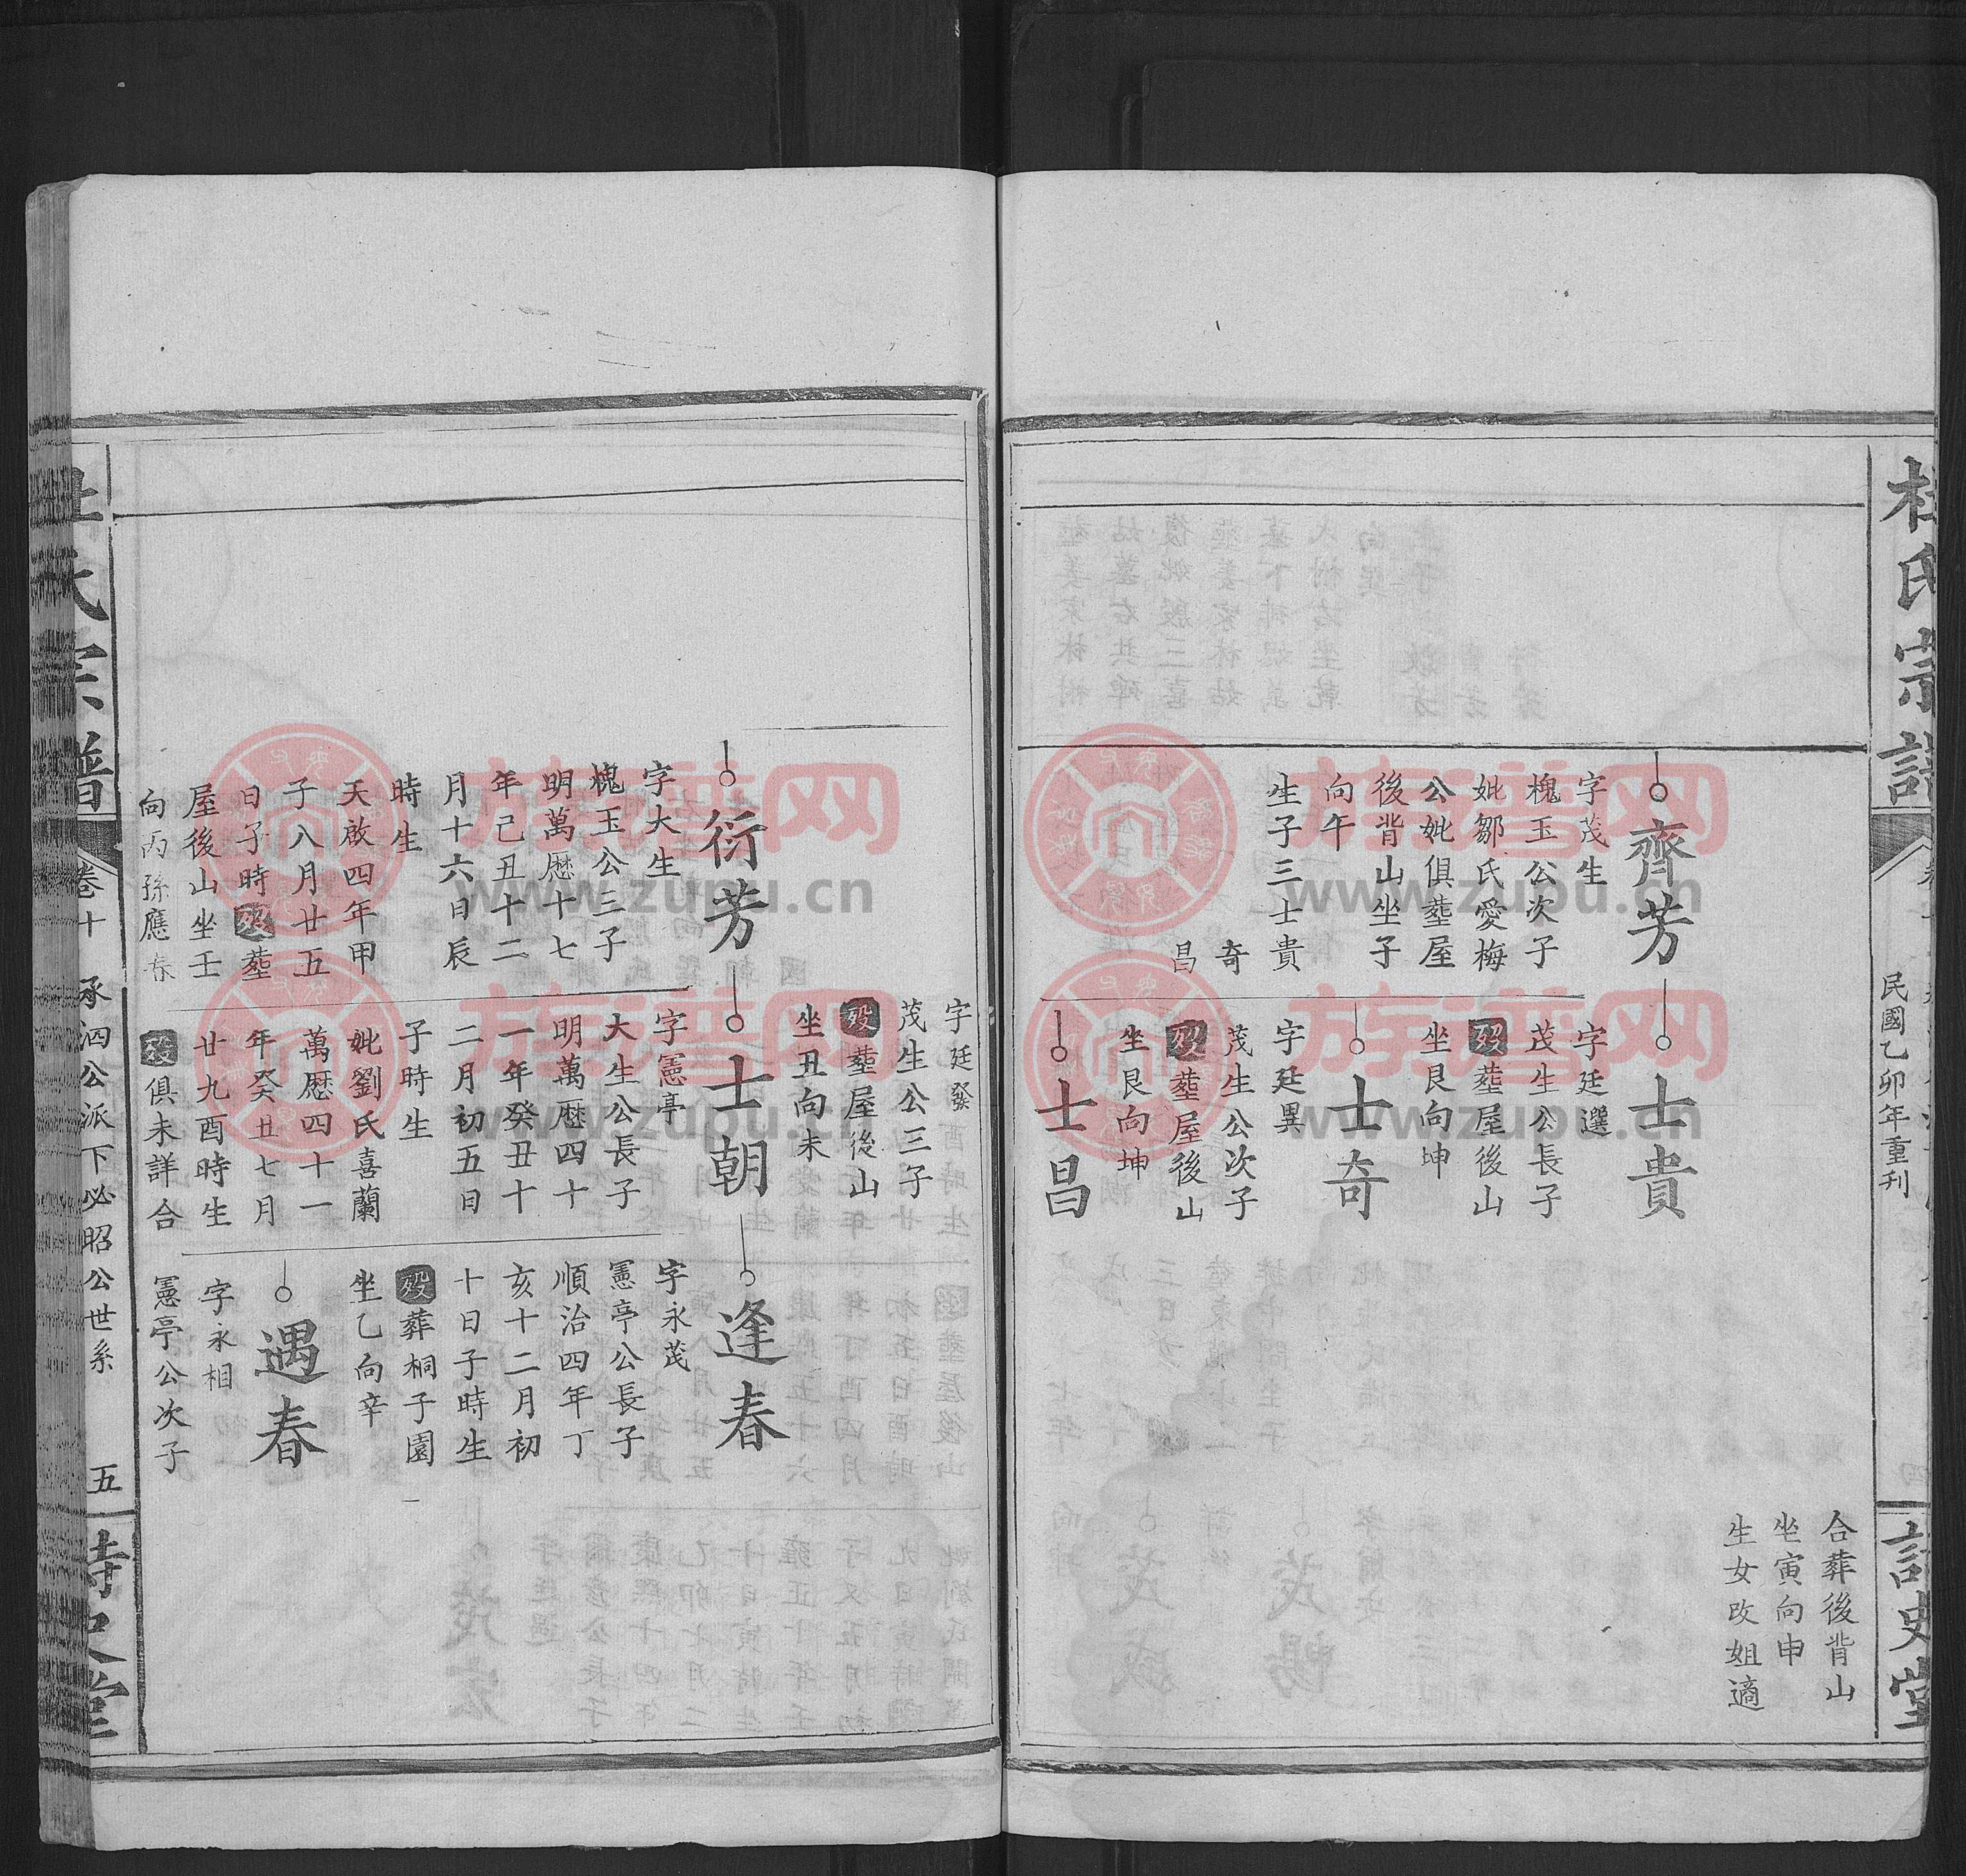 杜氏宗譜
民國乙卯年重刊
詩史堂
合葬後背山
坐寅向申
生女改姐適
齊芳
字茂生
槐玉公次子
妣鄒氏愛梅
公妣俱塟屋
後背山坐子
向午
生子三士貴
奇
昌
士貴
字廷選
茂生公長子
歿塟屋後山
坐艮向坤
士奇
字廷異
茂生公次子
歿塟屋後山
坐艮向坤
士昌
字廷發
茂生公三子
歿塟屋後山
坐丑向未
衍芳
字大生
槐玉公三子
明萬歷十七
年己丑十二
月十六日辰
時生
天啟四年甲
子八月廿五
日子時歿塟
屋後山坐壬
向丙孫應春
士朝
字憲亭
大生公長子
明萬歷四十
一年癸丑十
二月初五日
子時生
妣劉氏喜蘭
萬歷四十一
年癸丑七月
廿九酉時生
歿俱未詳合
逢春
字永茂
憲亭公長子
順治四年丁
亥十二月初
十日子時生
歿葬桐子園
坐乙向辛
遇春
字永相
憲亭公次子
杜氏宗譜
卷十
承泗公派下必昭公世系
五
詩史堂
族譜网
www.zupu.cn
族譜网
www.zupu.cn
族譜网
www.zupu.cn
族譜网
www.zupu.cn